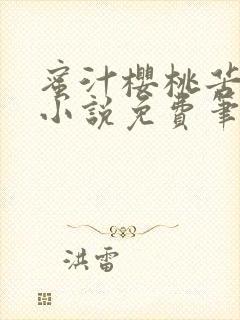 蜜汁櫻桃苦
小說免費筆
洪雷